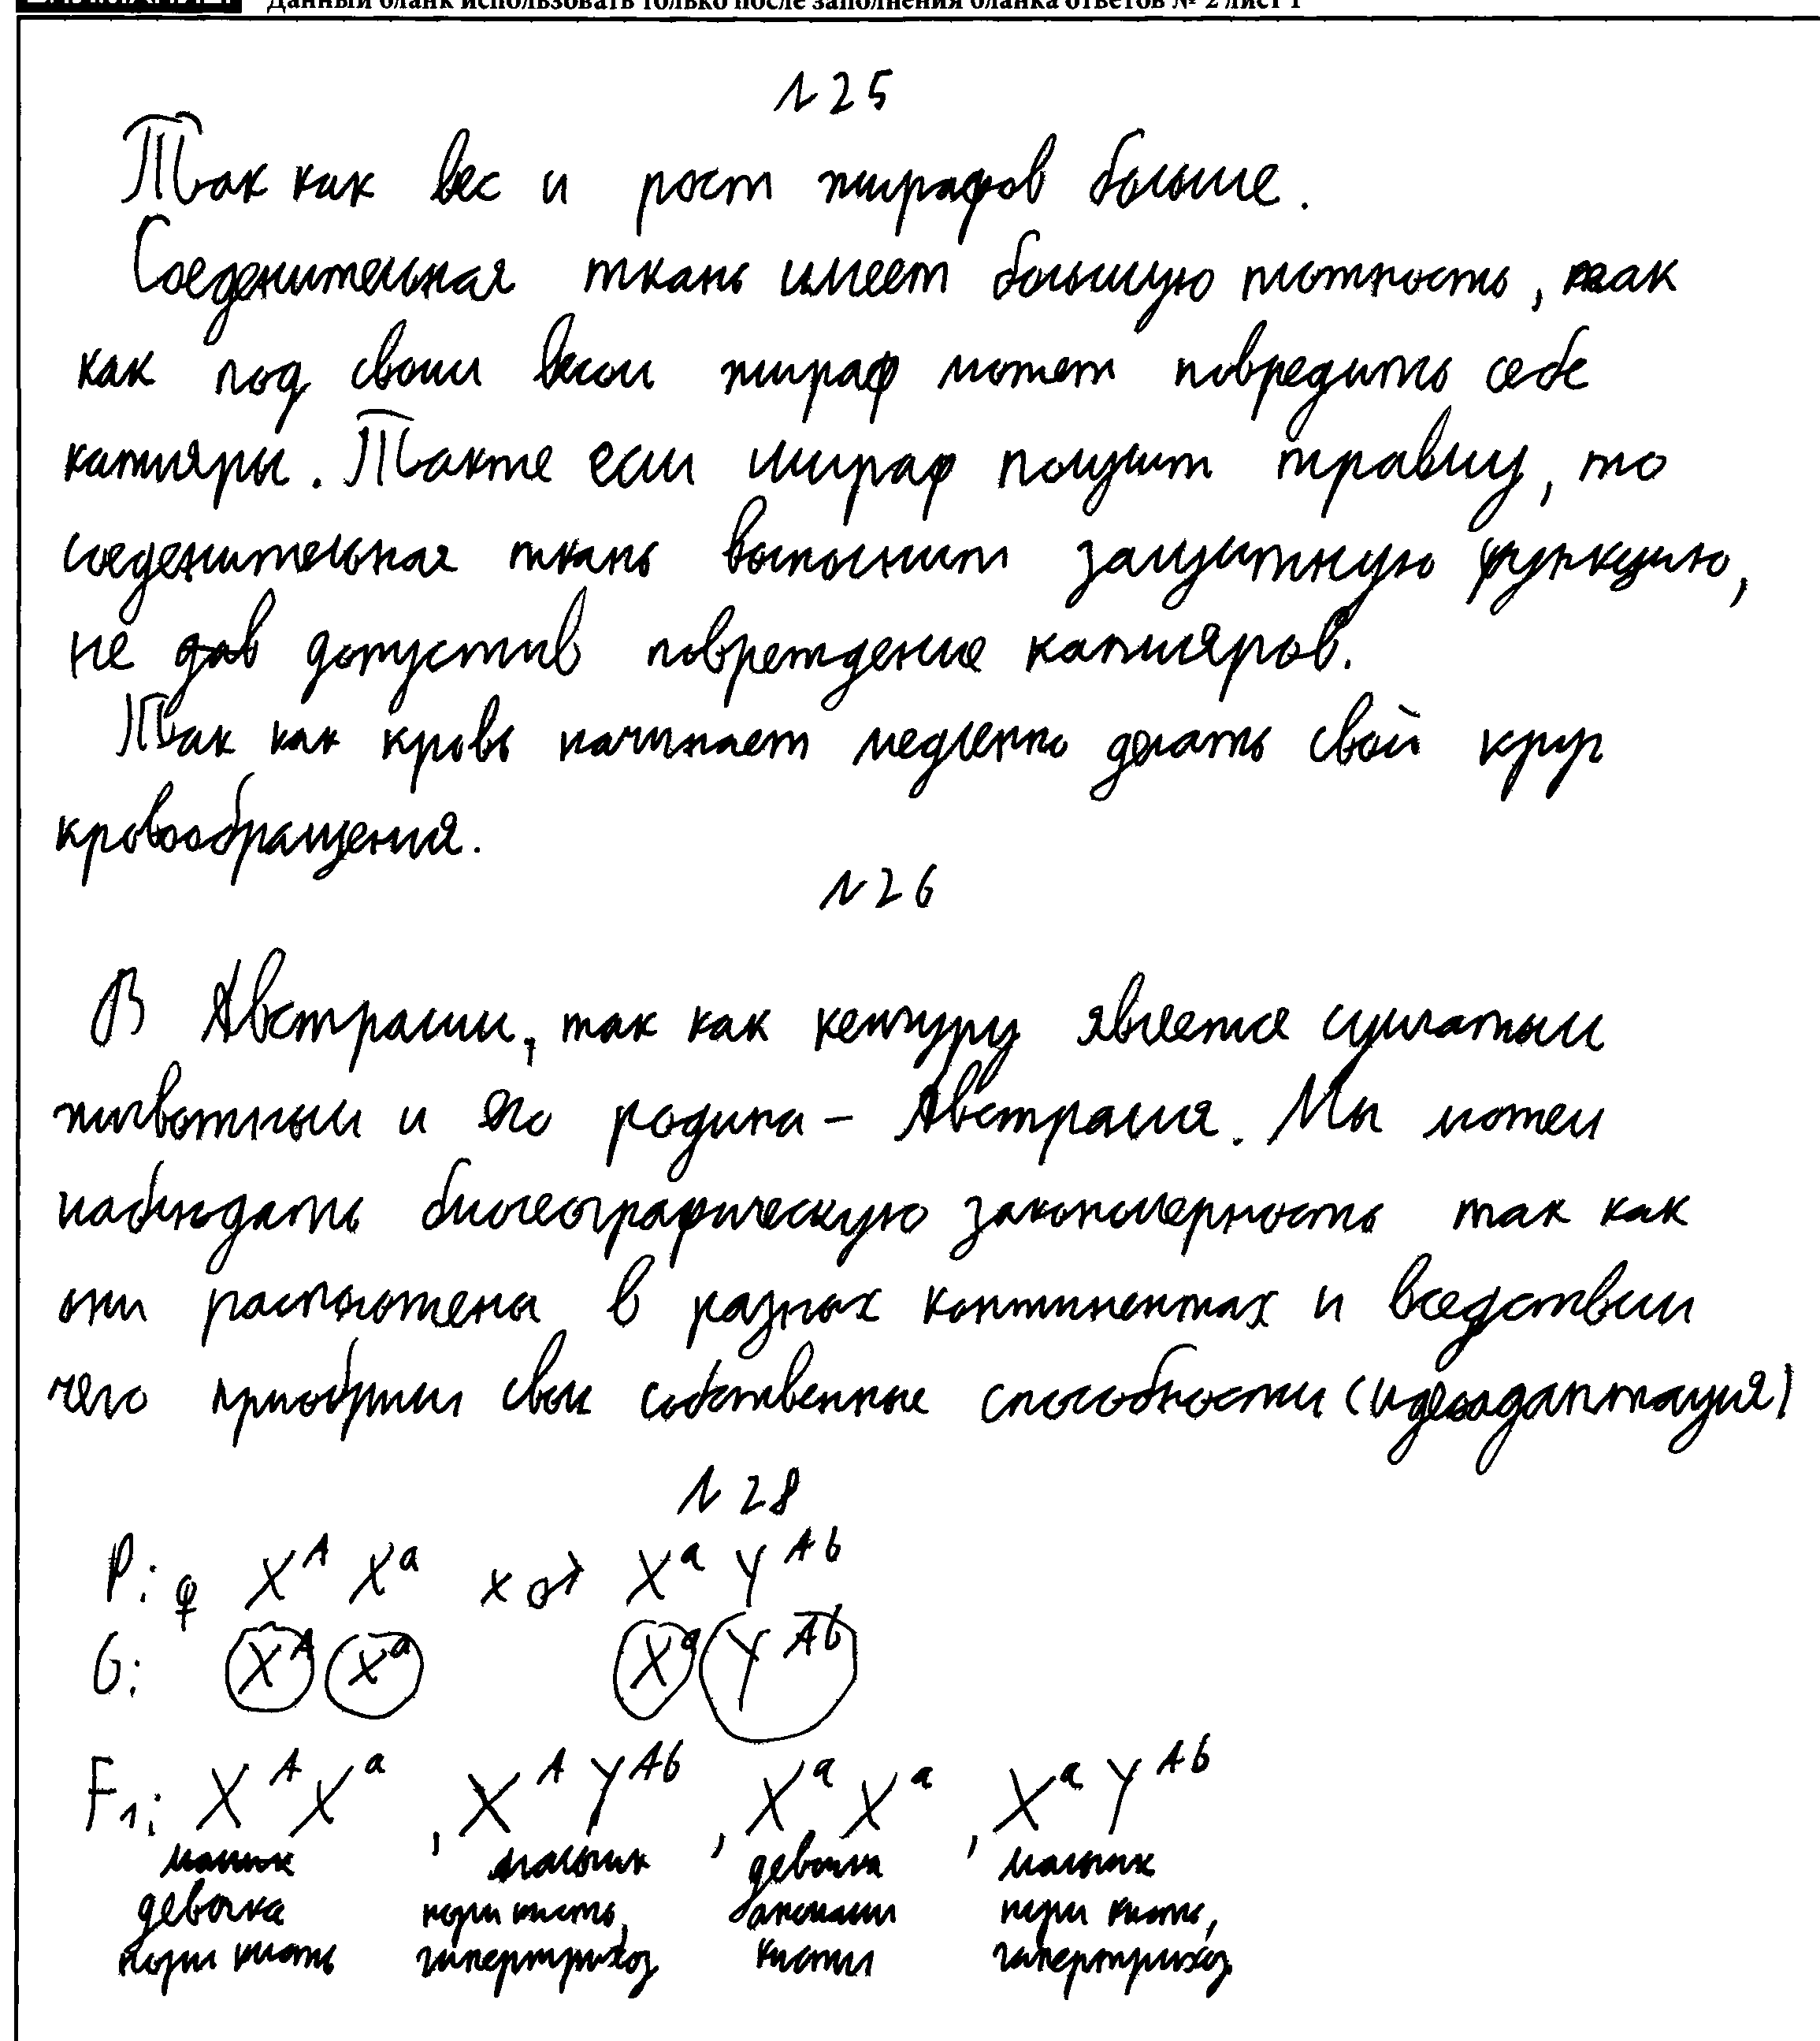 Данный бланк использовать только после заполнения бланка ответов № 2 лист 1
№25
Так как вес и рост жирафов больше.
Соеденительная ткань имеет большую плотность, так
как под своим весом жираф может повредить себе
капиляры. Также если жираф получит травму, то
соеденительная ткань выполнит защитную функцию,
не дав допустив повреждение капиляров.
Так как кровь начинает медленно делать свой круг
кровообращения.
№26
В Австралии, так как кенгуру является сумчатым
животным и его родина – Австралия. Мы можем
наблюдать биогеографическую закономерность так как
они расположены в разных континентах и вследствии
чего приобрели свои собственные способности (идеоадаптация)
№28
P: ♀ X^A X^a x ♂ X^a Y^Ab
G: X^A X^a X^a Y^Ab
F1: X^A X^a , X^A Y^Ab , X^a X^a , X^a Y^Ab
мальчик девочка мальчик
девочка норм кисть, аномалия норм кисть,
норм кисть гипертрихоз кисти гипертрихоз